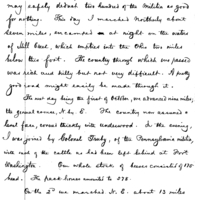 may safely deduct two hundred of the Militia as good
for nothing. This day I marched Northerly about
seven miles, encamped at night on the waters
of Mill Creek, which empties into the Ohio two miles
below this fort. The country through which we passed
was rich and hilly but not very difficult. A pretty
good road might easily be made through it.
The next day being the first of October, we advanced nine miles,
the general course, N. by E. The country now assumed a
level face, covered thickly with underwood. In the evening,
I was joined by Colonel Trotter, of the Pennsylvania militia
with most of the cattle as had been left behind at Fort
Washington. Our whole stock of beeves consisted of 175
head. The pack horses amounts to 578.
On the 2d we marched N. E. about 13 miles